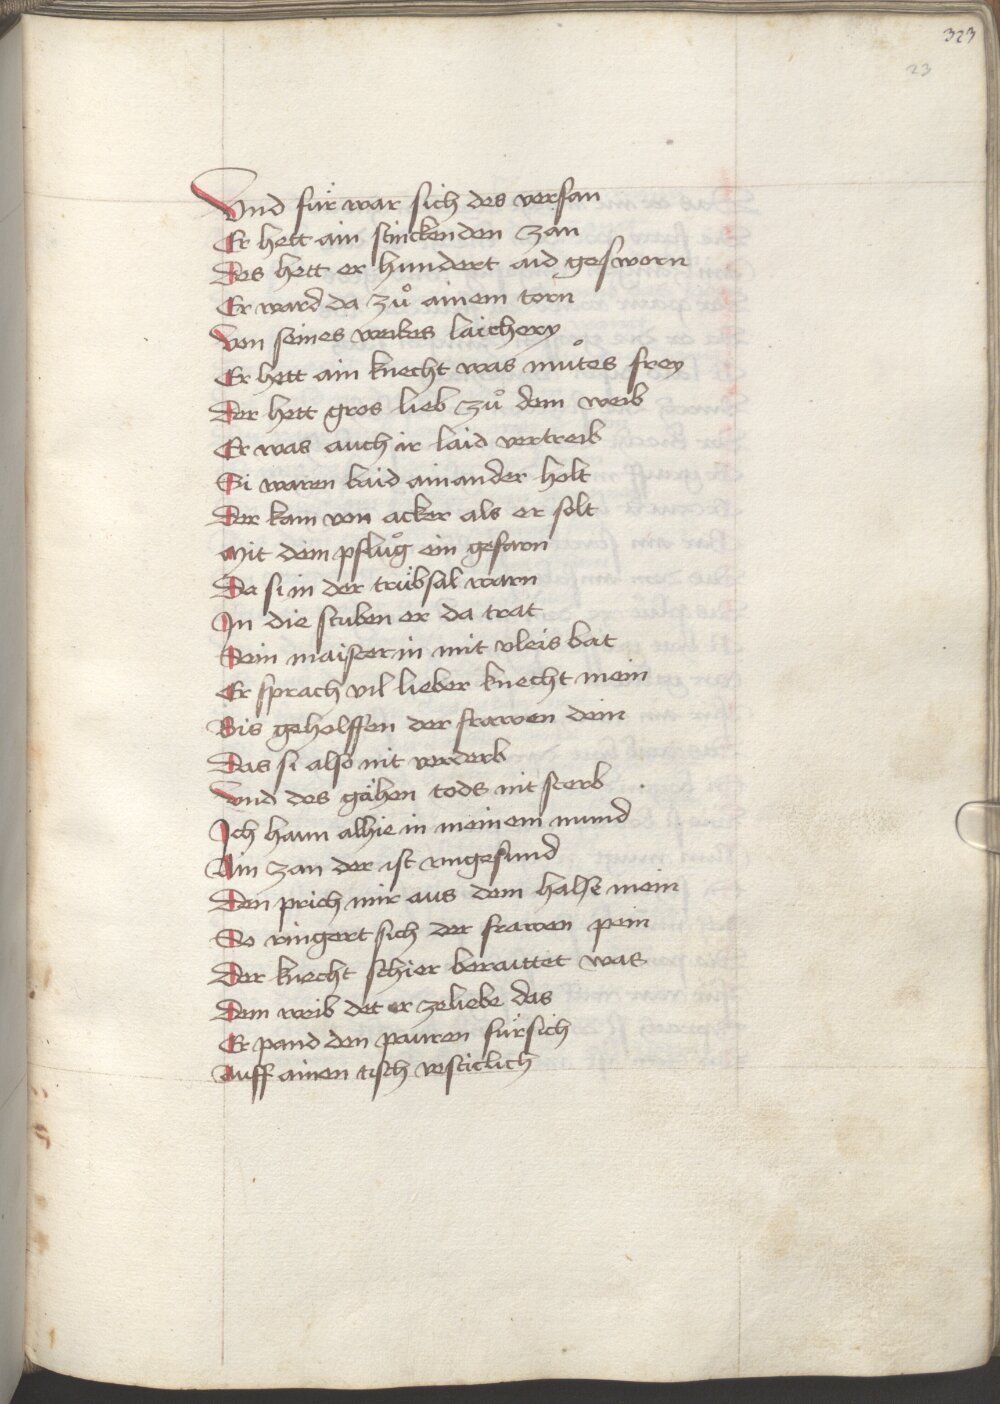 323
23
Vnd für war sich des versan
Er hett ain stinckenden zan
Des hett er hundert aid gesworn
Er ward da zů ainem torn
Von seines weibes laichery
Er hett ain knecht was můtes frey
Der hett gros lieb zů dem weib
Er was auch ir laid vertreib
Si waren baid ainander holt
Der kam von acker als er solt
Mit dem pflůg ein gefarn
Da si in der trübsal warn
In die stuben er da trat
Sein maisterin mit vleis bat
Er sprach vil lieber knecht mein
Bis geholffen der frawen dein
Das si also nit verderb
Vnd des gähen tods nit sterb
Ich hann alhie in meinem mund
Ain zan der ist vngesund
Den prich mir aus dem halse mein
So ringert sich der frawen pein
Der knecht schier beraittet was
Dem weib det er ze liebe das
Er pand den pauren fürsich
Auff ainen tisch vesticlich